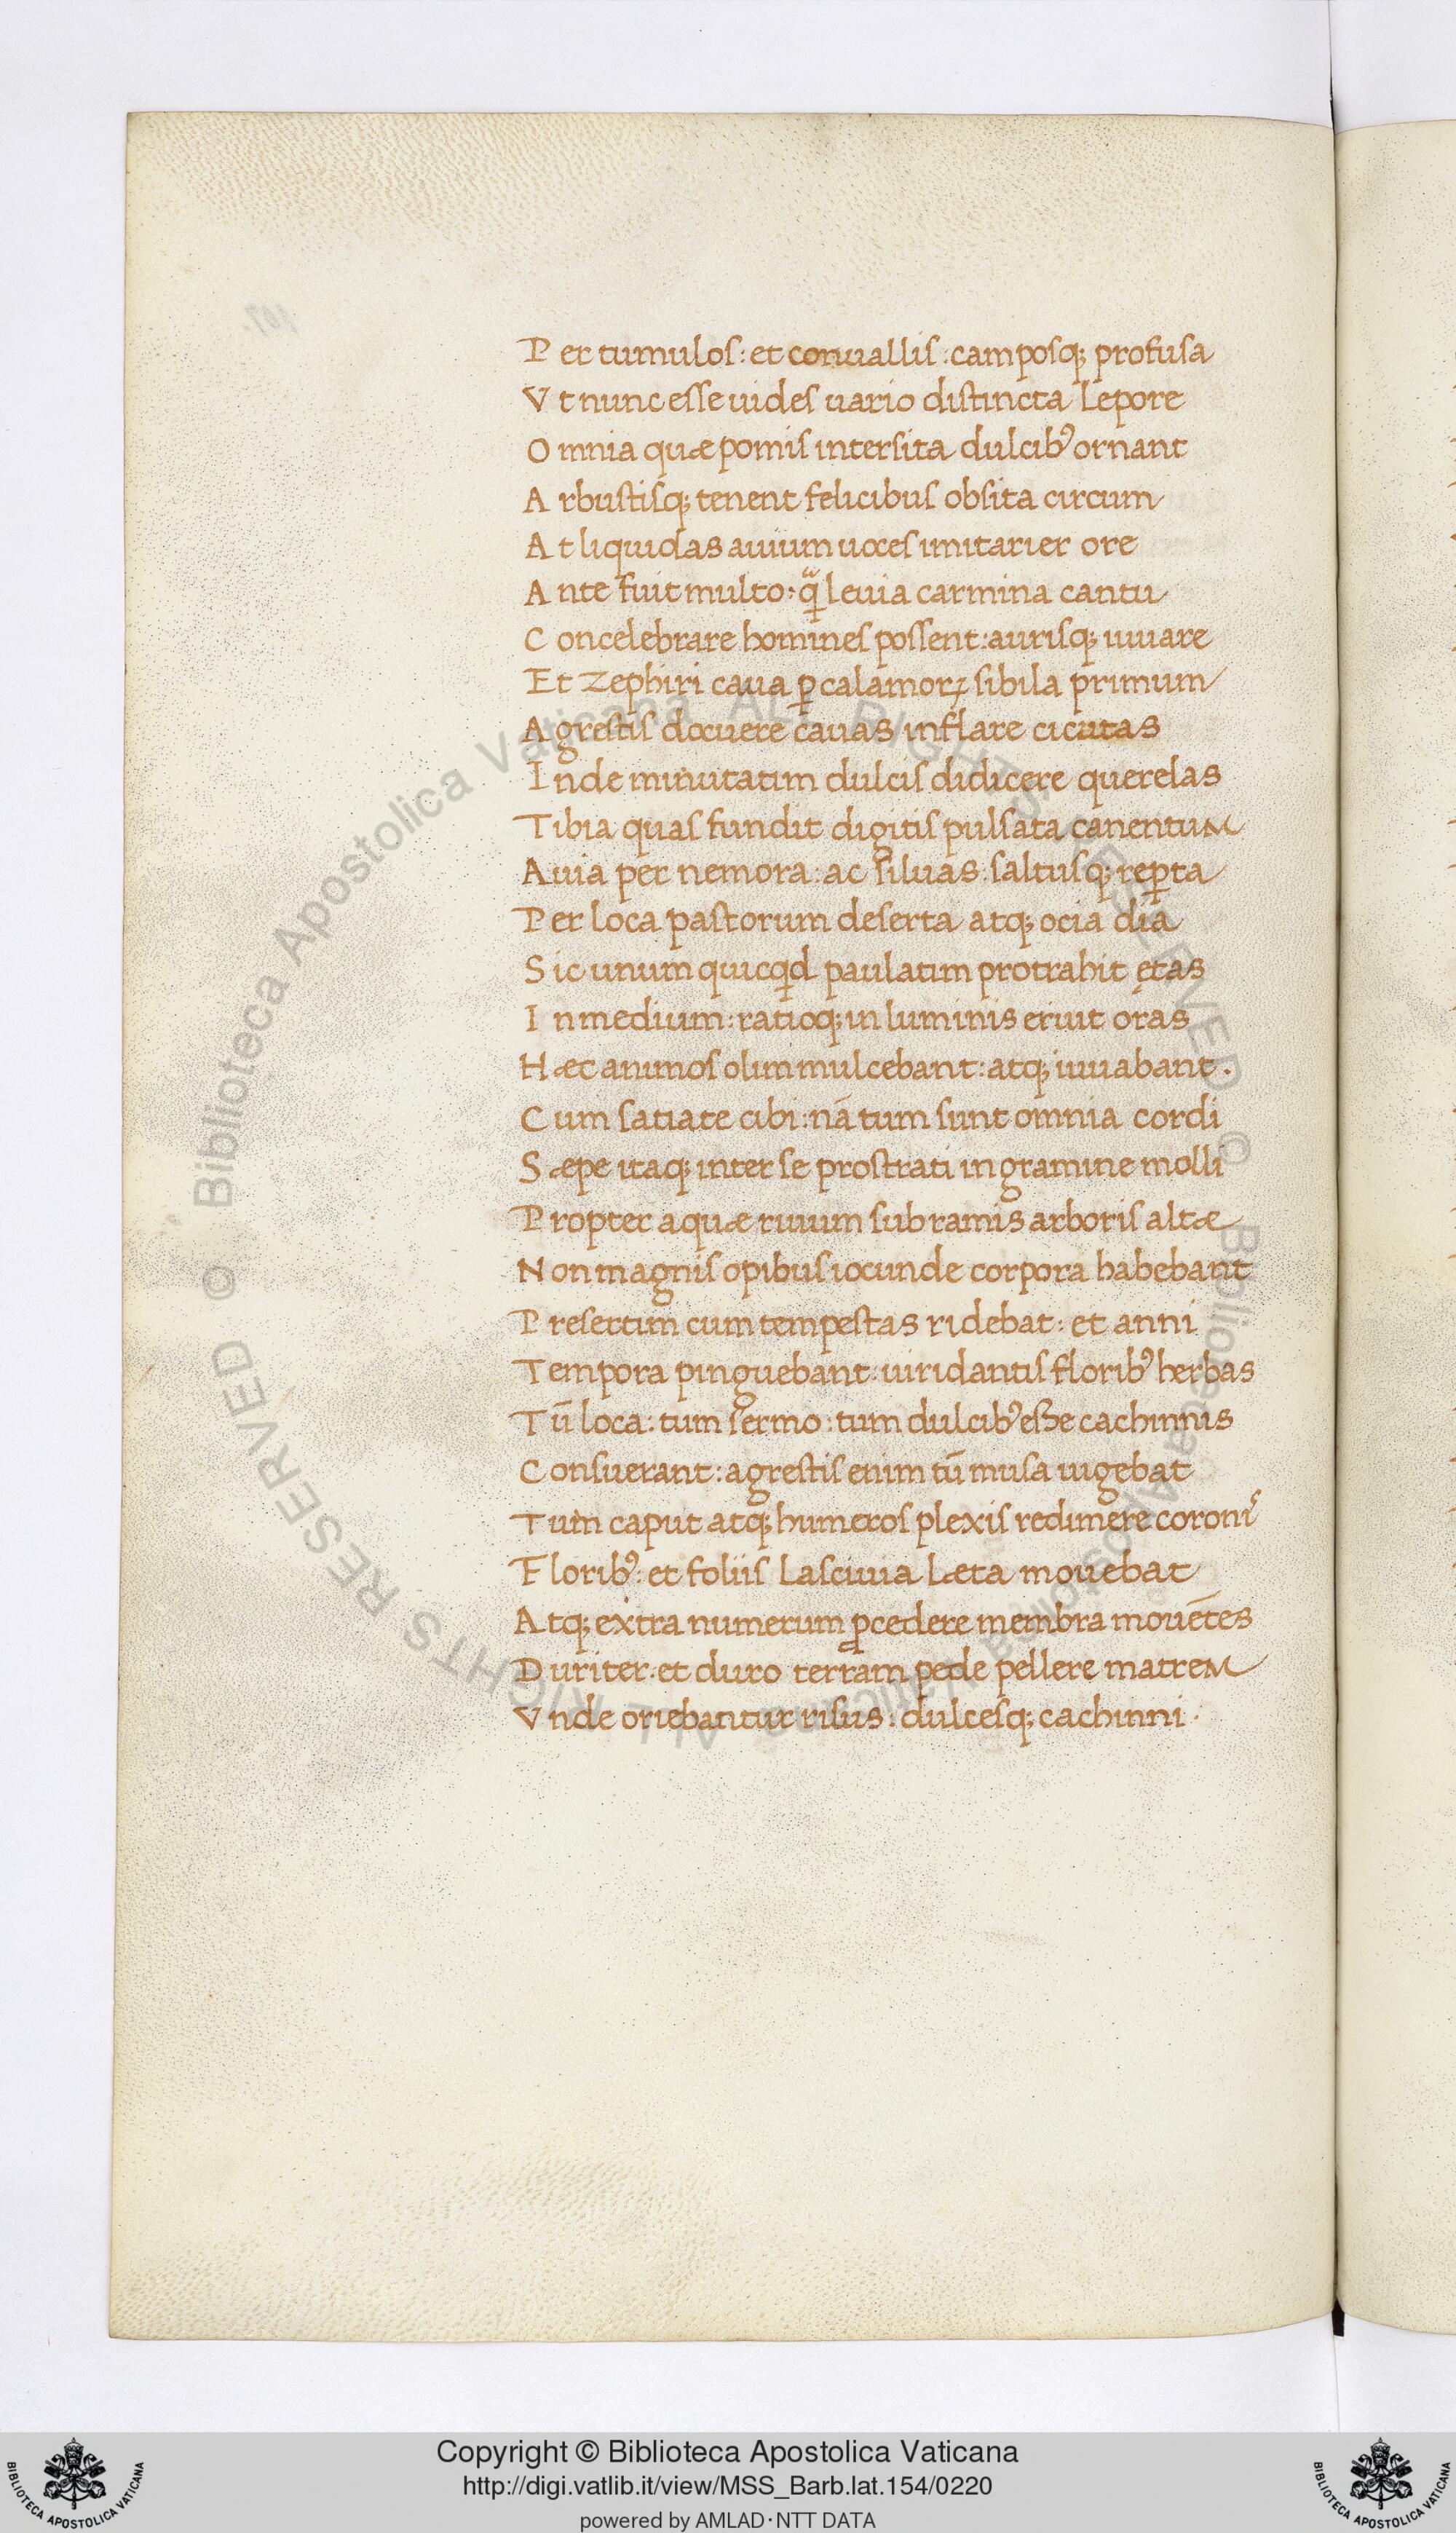 Per tumulos: et conuallis: camposq; profusa
Vt nunc esse uides uario distincta lepore
Omnia quæ pomis intersita dulcibꝰ ornant
Arbustisq; tenent felicibus obsita circum
At liquidas auium uoces imitarier ore
Ante fuit multo: qᷓ leuia carmina cantu
Concelebrare homines possent: aurisq; iuuare
Et Zephiri caua ꝑ calamoꝝ sibila primum
Agrestis docuere cauas inflare cicutas
Inde minutatim dulcis didicere querelas
Tibia quas fundit digitis pulsata canentum
Auia per nemora: ac siluas: saltusq; reꝑta
Per loca pastorum deserta atq; ocia dia
Sic unum quicqd paulatim protrahit ętas
In medium: ratioq; in luminis eruit oras
Hæc animos olim mulcebant: atq; iuuabant.
Cum satiate cibi: nā tum sunt omnia cordi
Sæpe itaq; inter se prostrati in gramine molli
Propter aquæ riuum sub ramis arboris altæ
Non magnis opibus iocunde corpora habebant
Presertim cum tempestas ridebat: et anni
Tempora pinguebant: uiridantis floribꝰ herbas
Tū loca: tum sermo: tum dulcibꝰ esse cachinnis
Consuerant: agrestis enim tū musa uigebat
Tum caput atq; humeros plexis redimere coronis
Floribꝰ: et foliis lasciuia læta mouebat
Atq; extra numerum ꝓcedere membra mouētes
Duriter: et duro terram pede pellere matrem
Vnde oriebantur risus: dulcesq; cachinni.
© Biblioteca Apostolica Vaticana ALL RIGHTS RESERVED © Biblioteca Apostolica Vaticana ALL RIGHTS RESERVED
Copyright © Biblioteca Apostolica Vaticana
http://digi.vatlib.it/view/MSS_Barb.lat.154/0220
powered by AMLAD·NTT DATA
BIBLIOTECA APOSTOLICA VATICANA
BIBLIOTECA APOSTOLICA VATICANA